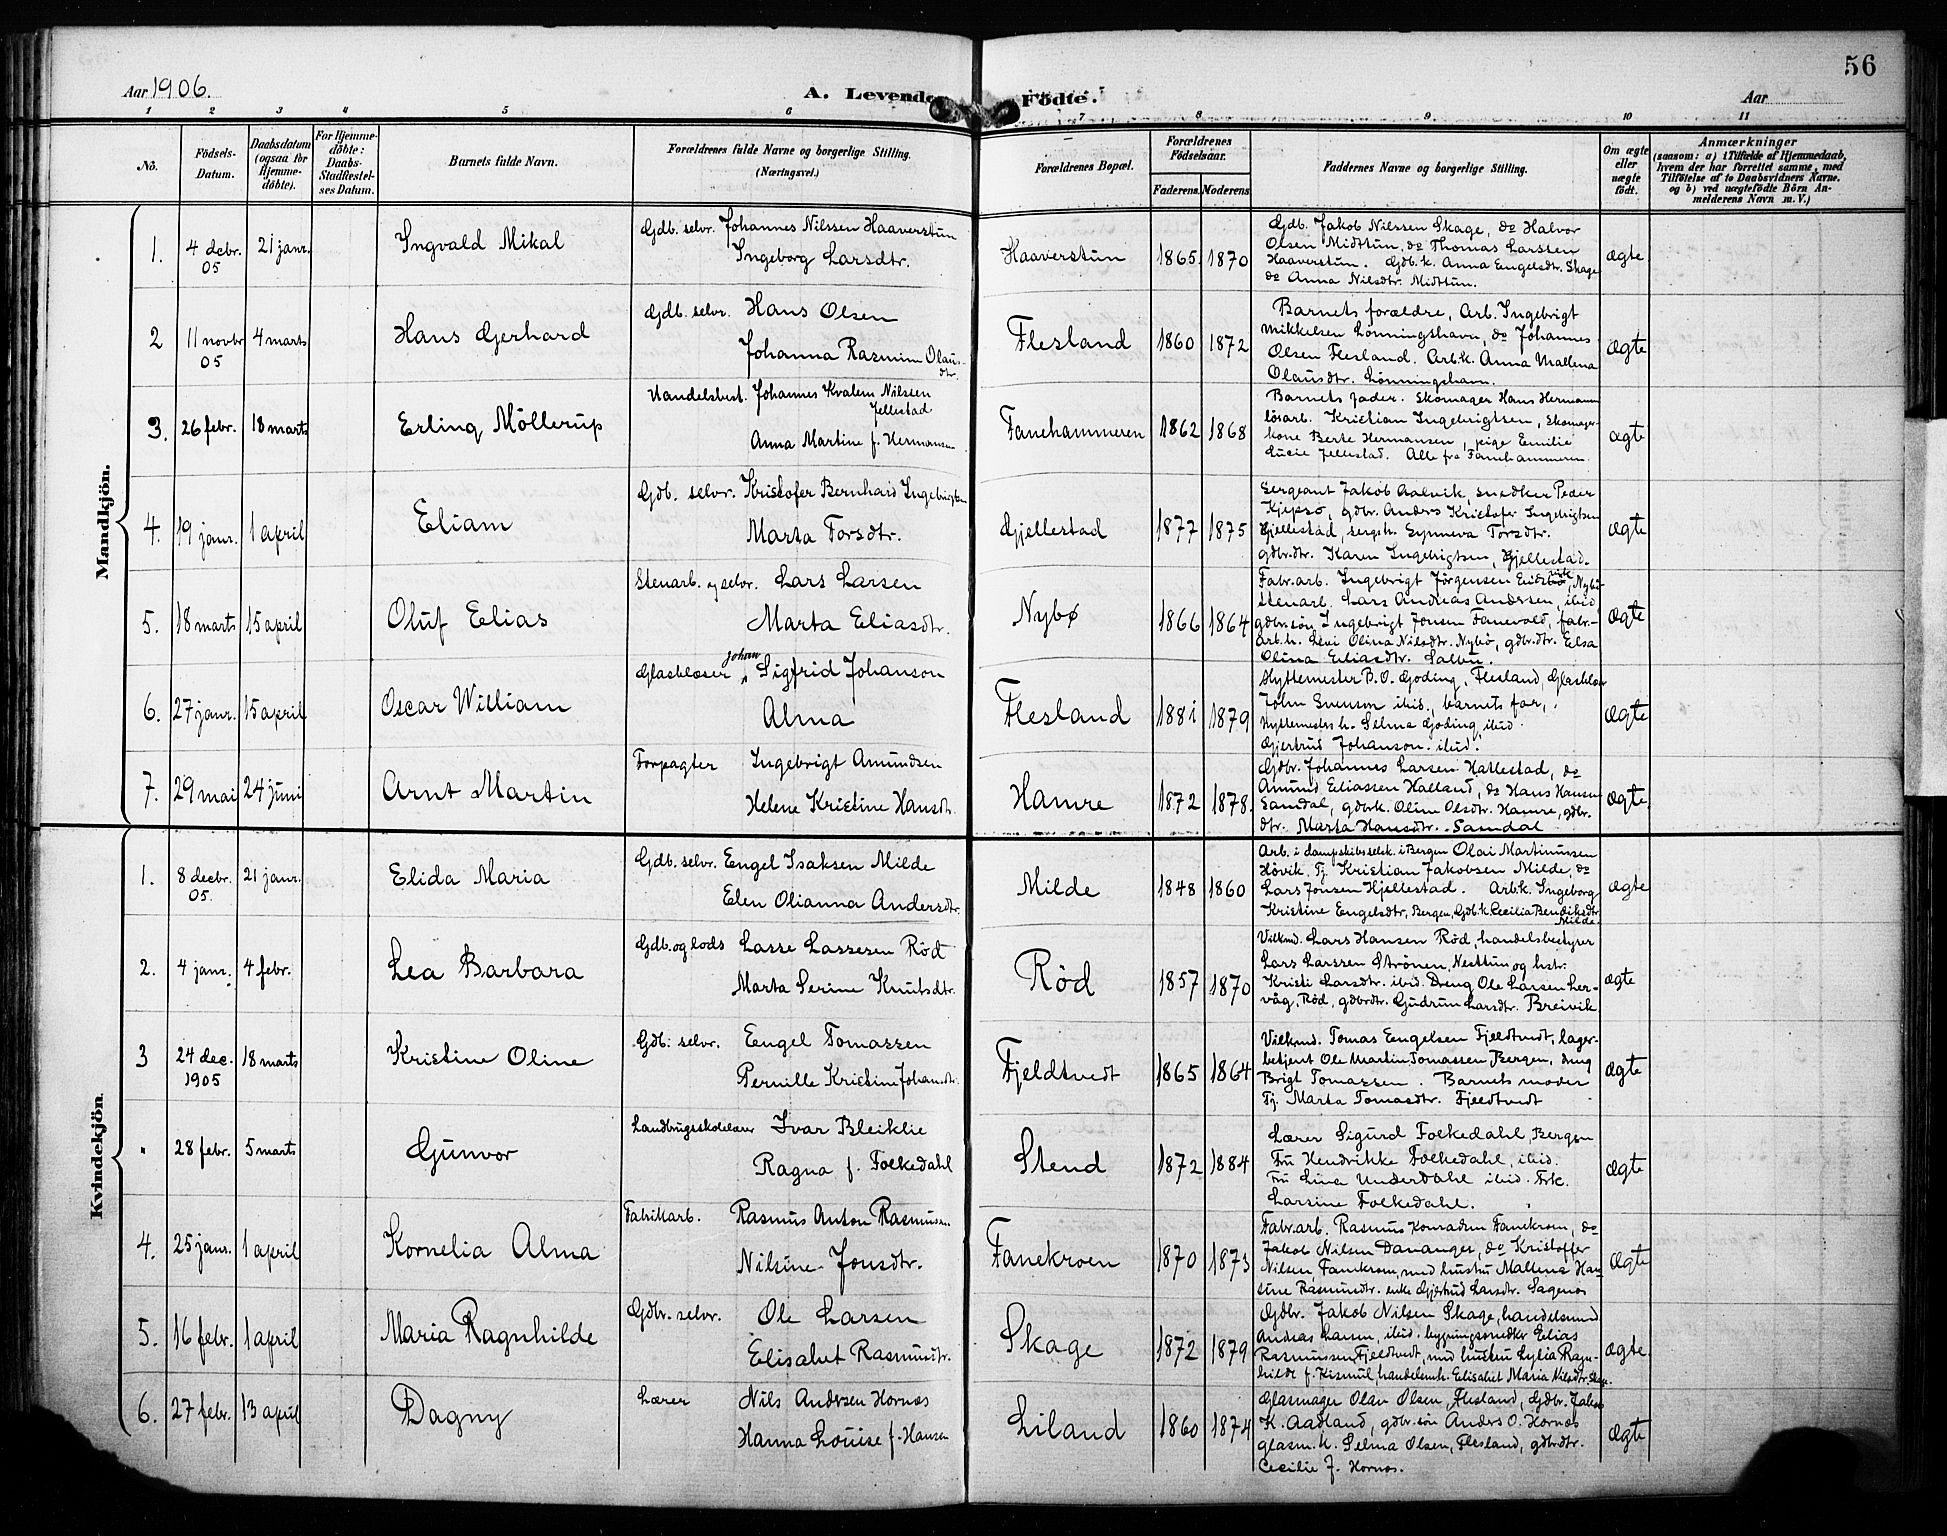 56
Aar 1906. A. Levende Födte. Aar
1 2 3 4 5 6 7 8 9 10 11
No. Födsels-Datum. Daabsdatum (ogsaa for Hjemmedöbte). For Hjemmedöbte: Daabs-Stadfestelses Datum. Barnets fulde Navn. Forældrenes fulde Navne og borgerlige Stilling. (Næringsvei.) Forældrenes Bopæl. Forældrenes Födselsaar. Faderens. Moderens. Faddernes Navne og borgerlige Stilling. Om ægte eller uægte födt. Anmærkninger (saasom: a) i Tilfælde af Hjemmedaab, hvem der har forrettet samme, med Tilföielse af to Daabsvidners Navne. og b) ved uægtefödte Börn Anmelderens Navn m. V.)
Mandkjön.
1. 4 decbr. 05 21 janr. Ingvald Mikal Gdb. selvr. Johannes Nilssen Haaverstun
Ingeborg Larsdtr. Haaverstun 1865. 1870 ægte
Gdb. Jakob Nilssen Skage, do Halvor
Olsen Midttun, do Thomas Larssen
Haaverstun. Gdb.k. Anna Engelsdtr. Skage
do Anna Nilsdtr. Midttun.
2 11 novbr 05 4 marts Hans Gjerhard Gdb. selvr. Hans Olsen
Johanna Rasmine Olausdtr. Flesland 1860 1872 ægte
Barnets forældre, Arb. Ingebrigt
Mikkelsen Lönningshavn, do Johannes
Olsen Flesland. Arb.k. Anna Mallena
Olausdtr. Lönningshavn.
3. 26 febr. 18 marts Erling Möllerup Handelsbest. Johannes Kvalem Nilssen
Jellestad
Anna Martine f. Hermansen Fanehammeren 1862 1868 ægte
Barnets fader. Skomager Hans Hermann
lösarb. Kristian Ingebrigtsen, Skomager-
kone Berte Hermansen, pige Emilie
Lucie Jellestad. Alle fra Fanehammeren
4. 19 janr. 1 april Eliam Gdb. selvr. Kristofer Bernhard Ingebrigtsen
Marta Torsdtr. Gjellestad 1877 1875 ægte
Sergeant Jakob Aalvik, snedker Peder
Kjepsö, gdbr. Anders Kristofer Ingebrigtsen
Gjellestad, sergtk. Synneva Torsdtr.
gdbr.dtr. Karen Ingebrigtsen, Gjellestad.
5. 18 marts 15 april Oluf Elias Stenarb. og selvr. Lars Larsen
Marta Eliasdtr. Nybø 1866 1864 ægte
Fabr.arb. Ingebrigt Jörgensen Eidsvik, Nybö
stenarb. Lars Andreas Andersen, ibid,
gdbr.sön Ingebrigt Jonsen Fanevold, fabr.-
arb.h. Sevi Olina Nilsdtr. Nybö, gdbr.dtr. Elsa
Olina Eliasdtr. Salbu.
6. 27 janr. 15 april Oscar William Glasblæser John Sigfrid Johanson
Alma Flesland 1881 1879 ægte
Hyttemester B.O. Goding, Flesland, Glasblæser
John Svenson ibid., barnets far,
Hyttemestrs h. Selma Goding, ibid.
Gjertrud Johanson. ibid.
7. 29 mai 24 juni Arnt Martin Forpagter Ingebrigt Amundsen
Helene Kristine Hansdtr. Hamre 1872 1878. ægte
Gdbr. Johannes Larsen Hatlestad, do
Amund Eliassen Halland, do Hans Hansen
Samdal, gdbrk. Oline Olsdtr. Hamre, gdbr.
dtr. Marta Hansdtr. Samdal
Kvindekjön.
1. 8 decbr. 05. 21 janr. Elida Maria Gdb. selvr. Engel Isaksen Milde
Elen Olianna Andersdtr. Milde 1848 1860 ægte
Arb. i dampskibsselsk. i Bergen Olai Martinussen
Hövik, Tj. Kristian Jakobsen Milde, do
Lars Jonsen Hjellestad. Arb.k. Ingeborg
Kristine Engelsdtr, Bergen, Gdb.k. Cecilia Bendiksdtr.
Milde
2. 4 janr. 4 febr. Lea Barbara Gdb. og lods Lasse Lassesen Röd
Marta Serine Knutsdtr. Röd 1857 1870 ægte
Vilkmd. Lars Hansen Röd, handelsbestyrer
Lars Larssen Strönen, Nesttun og hstr.
Kristi Larsdtr. ibid. Dreng Ole Larsen Ler-
våg, Röd, gdbrdtr. Gudrun Larsdtr. Breivik
3 24 dec. 1905 18 marts Kristine Oline Gdb. selvr. Engel Tomassen
Pernille Kristine Johansdtr. Fjeldtvedt 1865 1864 ægte
Vilkmd. Tomas Engelsen Fjeldtvedt, lager-
betjent Ole Martin Tomassen Bergen, dreng
Brigt Tomassen. Barnets moder
Tj. Marta Tomasdtr. Fjeldtvedt
" 28 febr. 5 marts Gunvor Landbrugsskolelærer Ivar Bleiklie
Ragna f. Folkedahl Stend 1872 1884 ægte
Lærer Sigurd Folkedahl, Bergen
Fru Hendrikke Folkedahl, ibid.
Fru Lina Underdahl ibid. Frk.
Larsine Folkedahl.
4. 25 janr. 1 april Kornelia Alma Fabrikarb. Rasmus Anton Rasmussen
Nilsine Jonsdtr. Fanekroen 1870 1873 ægte
Fabr.arb. Rasmus Konradsen Fanekroen, do
Jakob Nilsen Dananger, do Kristoffer
Nilsen Fanekroen, med hustru Mallena Han-
sine Rasmusdtr. enke Gjertrud Larsdtr. Sagenes
5. 16 febr. 1 april Maria Ragnhilde Gdbr. selvr. Ole Larsen
Elisabet Rasmusdtr. Skage 1872 1879 ægte
Gdbr. Jakob Nilsen Skage, handelsmnd
Andras Larsen, ibid. bygningssnedkr Elias
Rasmussen, Fjeldtvedt, med hustru Sylia Ragn-
hilde f. Kismul, handelsmh. Elisabet Maria Nilsdtr. Skage.
6. 27 febr. 13 april Dagny Lærer Nils Andersen Hornes
Hanna Louise f. Hansen Liland 1860 1874 ægte
Glasmager Olav Olsen, Flesland, Gdbr. Jakob
K. Aadland, gdbr.sön Anders O. Hornes
glasm.k. Selma Olsen, Flesland, gdbrdtr.
Cecilie J. Hornes.